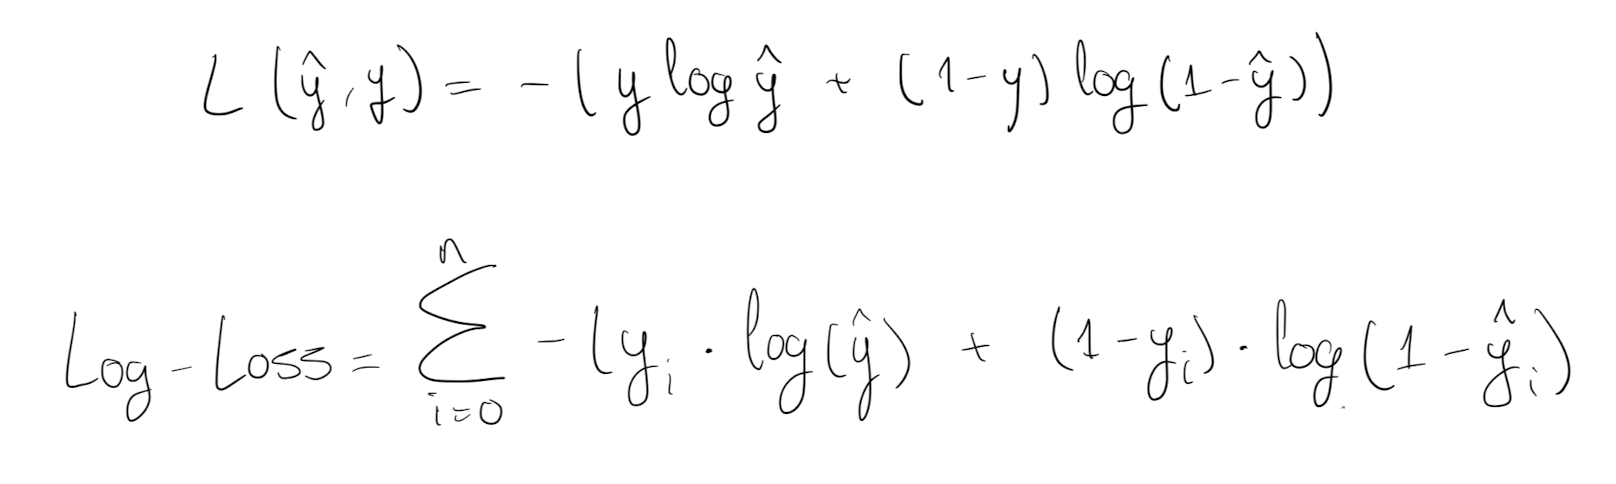 L(ŷ, y) = -(y log ŷ + (1-y) log(1-ŷ))
Log-Loss = ∑_{i=0}^{n} -(y_i · log(ŷ) + (1-y_i) · log(1-ŷ_i)